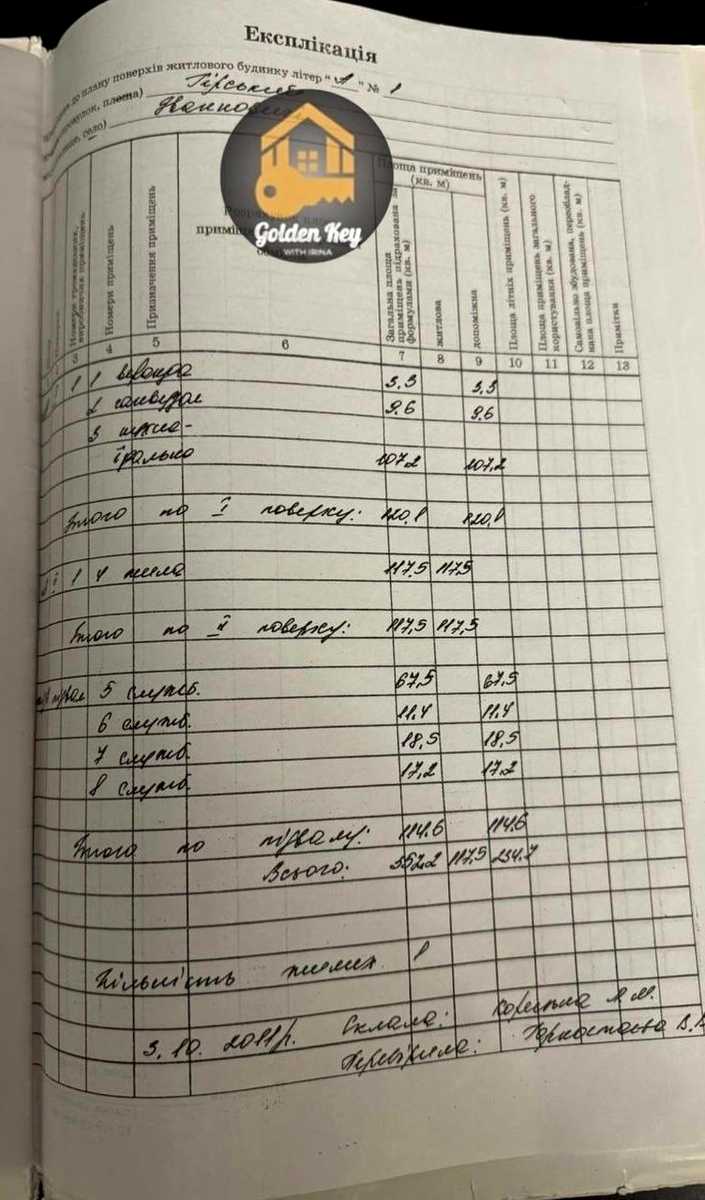 Експлікація
до плану поверхів житлового будинку літер "А" № 1
провулок, площа) Гірський
село)
Golden Key
WITH IRINA
Номери приміщень
Призначення приміщень
Площа приміщень (кв. м)
Загальна площа приміщень підрахована за формулами (кв. м)
житлова
допоміжна
Площа літніх приміщень (кв. м)
Площа приміщень загального користування (кв. м)
Самовільно збудована, переоблад- нана площа приміщень (кв. м)
Примітки
3 4 5 6 7 8 9 10 11 12 13
1 1 веранда 3.3 3.3
2 санвузол 9.6 9.6
3 кухня-
їдальня 107,2 107,2
Этого по I поверху: 120,1 120,1
1 4 жила 117,5 117,5
Этого по II поверху: 117,5 117,5
підвал 5 служб. 67,5 67,5
6 служб. 11,4 11,4
7 служб. 18,5 18,5
8 служб. 17,2 17,2
Этого по підвалу: 114,6 114,6
Всього: 352,2 117,5 234,7
Кількість жилих 1
3. 10. 2011р. Склала: М.
Перевірила: